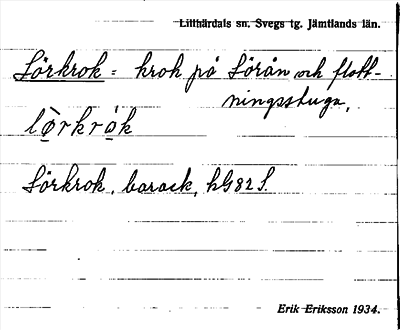 Lillhärdals sn. Svegs tg. Jämtlands län.
Lörkrok = krok på Lörån och flott-
ningsstuga.
lø̀rkrò̤k
Lörkrok, barack, kG82S.
Erik Eriksson 1934.